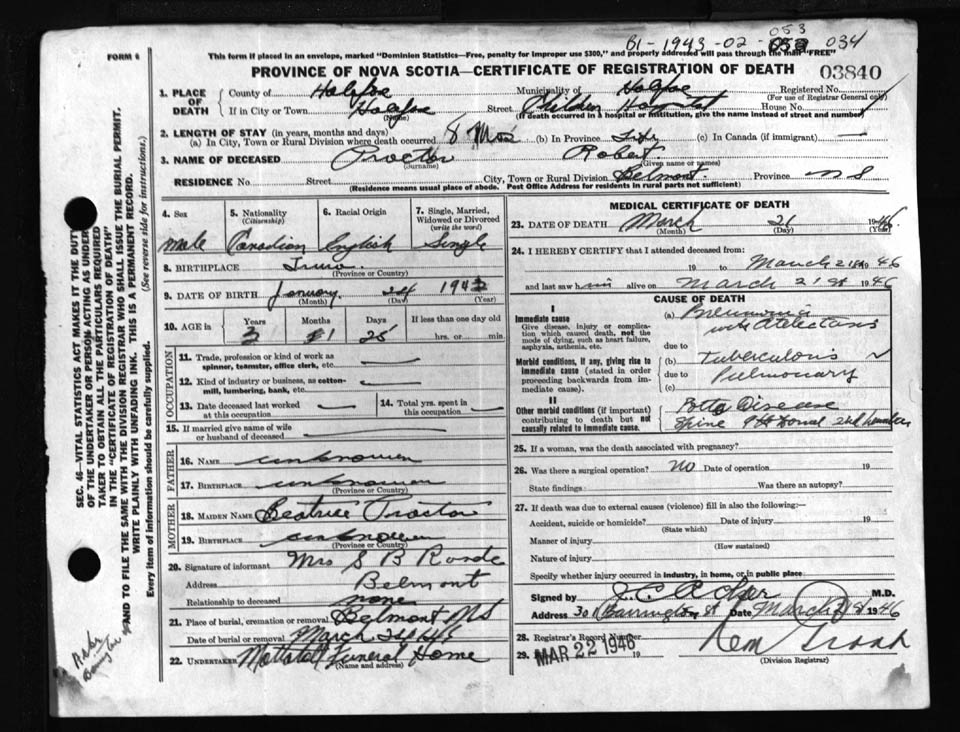 BI-1943-02-053 034
053
FORM 6
This form if placed in an envelope, marked "Dominion Statistics—Free, penalty for improper use $300," and properly addressed will pass through the mail "FREE"
PROVINCE OF NOVA SCOTIA—CERTIFICATE OF REGISTRATION OF DEATH
03840
1. PLACE OF DEATH
County of Halifax Municipality of Halifax Registered No.
(For use of Registrar General only)
If in City or Town Halifax Street Children Hospital House No.
(Name) (If death occurred in a hospital or institution, give the name instead of street and number)
2. LENGTH OF STAY (in years, months and days)
(a) In City, Town or Rural Division where death occurred 8 Mos (b) In Province Life (c) In Canada (if immigrant) —
3. NAME OF DECEASED Proctor Robert
(Surname) (Given name or names)
RESIDENCE No. Street City, Town or Rural Division Belmont Province N S
(Residence means usual place of abode. Post Office Address for residents in rural parts not sufficient)
4. Sex
Male
5. Nationality (Citizenship)
Canadian
6. Racial Origin
English
7. Single, Married, Widowed or Divorced (write the word)
Single
8. BIRTHPLACE Truro
(Province or Country)
9. DATE OF BIRTH January 24 1943
(Month) (Day) (Year)
10. AGE in Years Months Days If less than one day old
3 1 25 hrs. or min.
OCCUPATION
11. Trade, profession or kind of work as spinner, teamster, office clerk, etc. —
12. Kind of industry or business, as cotton-mill, lumbering, bank, etc. —
13. Date deceased last worked at this occupation —
14. Total yrs. spent in this occupation —
15. If married give name of wife or husband of deceased —
FATHER
16. NAME unknown
17. BIRTHPLACE unknown
(Province or Country)
MOTHER
18. MAIDEN NAME Beatrice Proctor
19. BIRTHPLACE unknown
(Province or Country)
20. Signature of informant Mrs S B
Address Belmont
Relationship to deceased none
21. Place of burial, cremation or removal Belmont NS
Date of burial or removal March 24
22. UNDERTAKER Mattatall Funeral Home
(Name and address)
MEDICAL CERTIFICATE OF DEATH
23. DATE OF DEATH March 21 1946
(Month) (Day) (Year)
24. I HEREBY CERTIFY that I attended deceased from:
19 to March 21st 1946
and last saw him alive on March 21st 1946
CAUSE OF DEATH
I
Immediate cause
Give disease, injury or complication which caused death, not the mode of dying, such as heart failure, asphyxia, asthenia, etc.
(a) Pneumonia with Atelectasis
due to
Morbid conditions, if any, giving rise to immediate cause (stated in order proceeding backwards from immediate cause).
(b) Tuberculosis
due to Pulmonary
(c)
II
Other morbid conditions (if important) contributing to death but not causally related to immediate cause.
Potts Disease
Spine
25. If a woman, was the death associated with pregnancy?
26. Was there a surgical operation? No Date of operation 19
State findings Was there an autopsy?
27. If death was due to external causes (violence) fill in also the following:—
Accident, suicide or homicide? Date of injury 19
(State which)
Manner of injury
(How sustained)
Nature of injury
Specify whether injury occurred in industry, in home, or in public place
Signed by J. C. Acker M.D.
Address Barrington St Date March 1946
28. Registrar's Record Number
29. MAR 22 1946 19
(Division Registrar)
SEC. 46—VITAL STATISTICS ACT MAKES IT THE DUTY
OF THE UNDERTAKER OR PERSON ACTING AS UNDER-
TAKER TO OBTAIN ALL THE PARTICULARS REQUIRED
IN THE "CERTIFICATE OF REGISTRATION OF DEATH"
AND TO FILE THE SAME WITH THE DIVISION REGISTRAR WHO SHALL ISSUE THE BURIAL PERMIT.
WRITE PLAINLY WITH UNFADING INK. THIS IS A PERMANENT RECORD.
Every item of information should be carefully supplied. (See reverse side for instructions.)